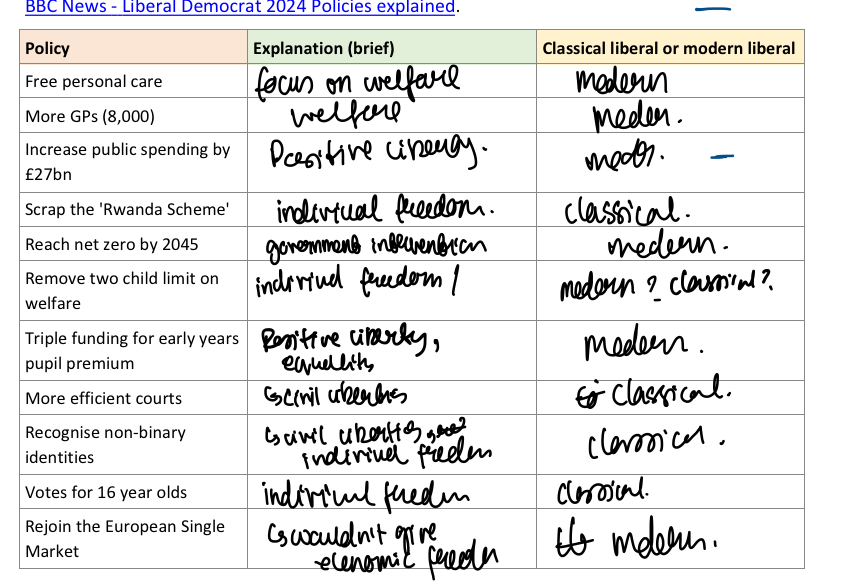 BBC News - Liberal Democrat 2024 Policies explained.
Policy Explanation (brief) Classical liberal or modern liberal
Free personal care focus on welfare modern
More GPs (8,000) welfare moder.
Increase public spending by £27bn Positive liberty. moder.
Scrap the 'Rwanda Scheme' individual freedom. classical.
Reach net zero by 2045 government intervention modern.
Remove two child limit on welfare individ freedom / modern? classical?
Triple funding for early years pupil premium Positive liberty, equality modern.
More efficient courts civil liberties classical.
Recognise non-binary identities civil liberties individ freedom classical.
Votes for 16 year olds freedom classical.
Rejoin the European Single Market wouldn't give economic freedom modern.